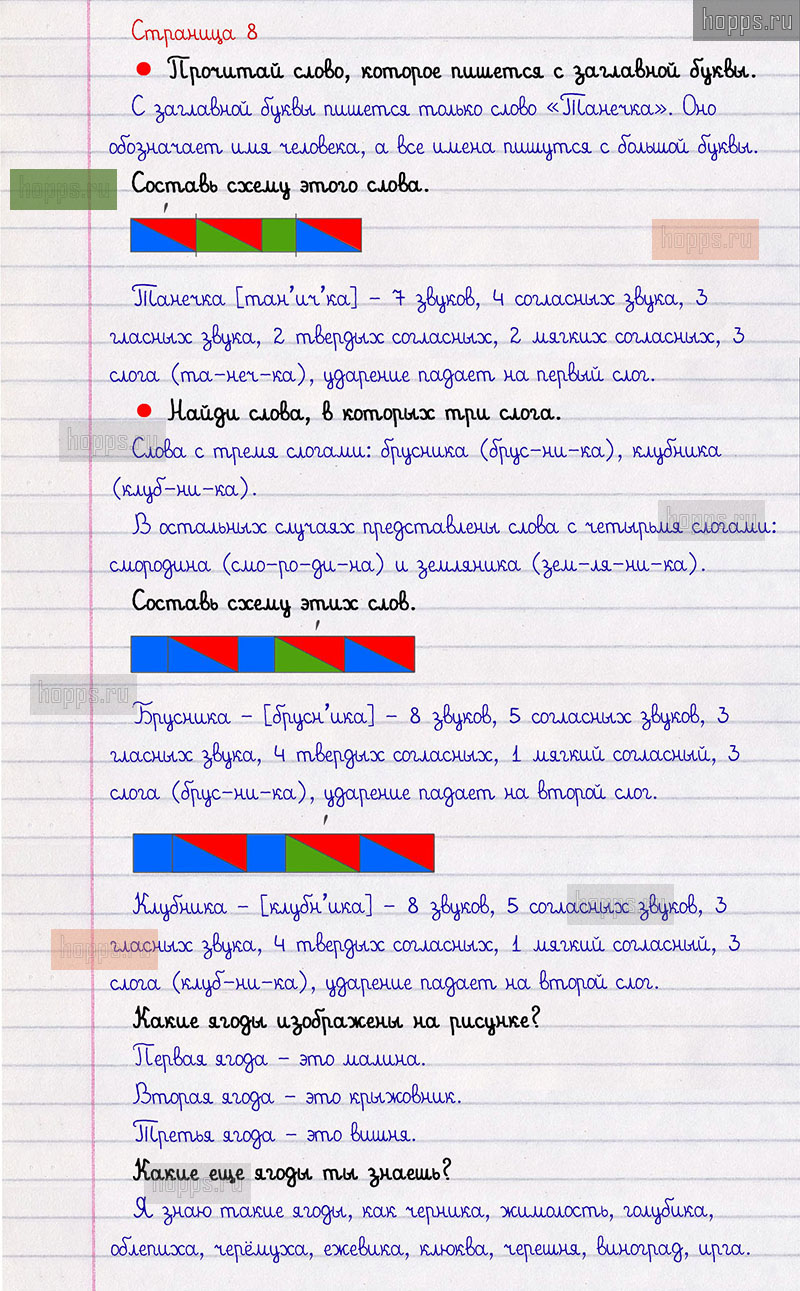 hopps.ru
Страница 8
Прочитай слово, которое пишется с заглавной буквы.
С заглавной буквы пишется только слово «Танечка». Оно
обозначает имя человека, а все имена пишутся с большой буквы.
hopps.ru
Составь схему этого слова.
hopps.ru
Танечка [тан’ич’ка] – 7 звуков, 4 согласных звука, 3
гласных звука, 2 твердых согласных, 2 мягких согласных, 3
слога (та-неч-ка), ударение падает на первый слог.
Найди слова, в которых три слога.
hopps.ru
Слова с тремя слогами: брусника (брус-ни-ка), клубника
(клуб-ни-ка).
hopps.ru
В остальных случаях представлены слова с четырьмя слогами:
смородина (смо-ро-ди-на) и земляника (зем-ля-ни-ка).
Составь схему этих слов.
hopps.ru
Брусника – [брусн’ика] – 8 звуков, 5 согласных звуков, 3
гласных звука, 4 твердых согласных, 1 мягкий согласный, 3
слога (брус-ни-ка), ударение падает на второй слог.
hopps.ru
Клубника – [клубн’ика] – 8 звуков, 5 согласных звуков, 3
hopps.ru
гласных звука, 4 твердых согласных, 1 мягкий согласный, 3
слога (клуб-ни-ка), ударение падает на второй слог.
Какие ягоды изображены на рисунке?
Первая ягода – это малина.
Вторая ягода – это крыжовник.
Третья ягода – это вишня.
Какие еще ягоды ты знаешь?
hopps.ru
Я знаю такие ягоды, как черника, жимолость, голубика,
облепиха, черёмуха, ежевика, клюква, черешня, виноград, ирга.